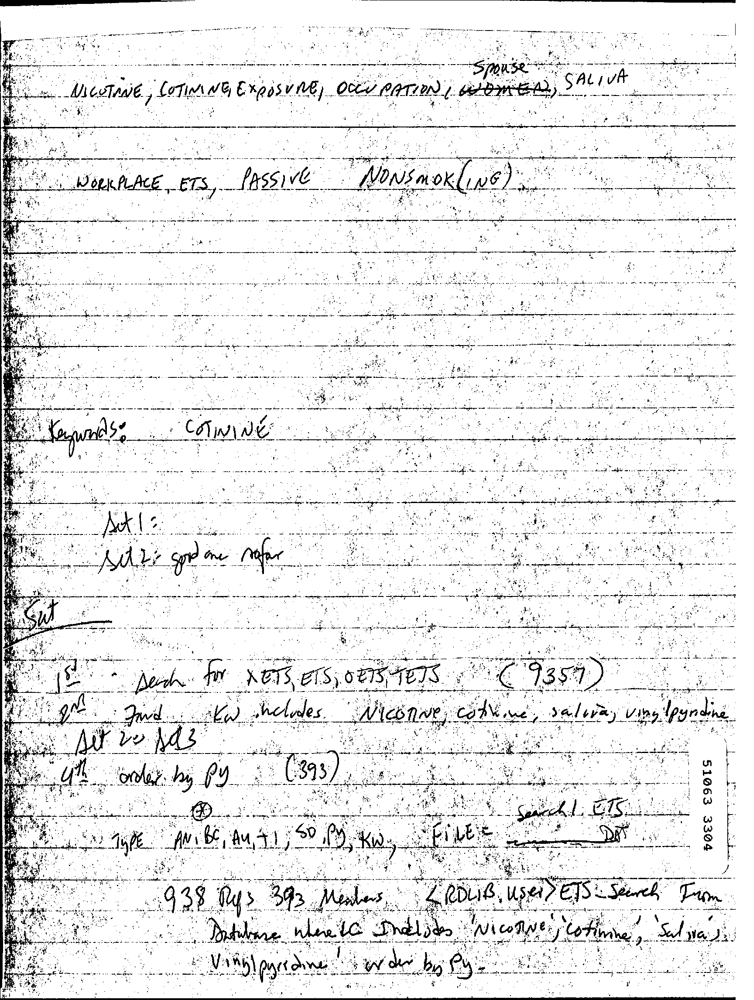 Spouse
NICOTINE, COTININE, EXPOSURE, OCCUPATION, WOMEN, SALIVA
WORKPLACE, ETS, PASSIVE NONSMOK(ING)
Keywords: COTININE
Set 1:
Set 2: good one sofar
1st Search for XETS, ETS, OETS, TETS (9357)
2nd Find KW includes NICOTINE, cotinine, saliva, vinylpyridine
Set 2 Set 3
4th order by PY (393)
TYPE AN, BC, AU, TI, SO, PY, KW, FILE = Search1.ETS
938 393 Members <RDLIB.User>ETS_Search From
Database where Includes 'NICOTINE', 'Cotinine', 'Saliva',
Vinylpyrridine' order by Py.
51063 3304